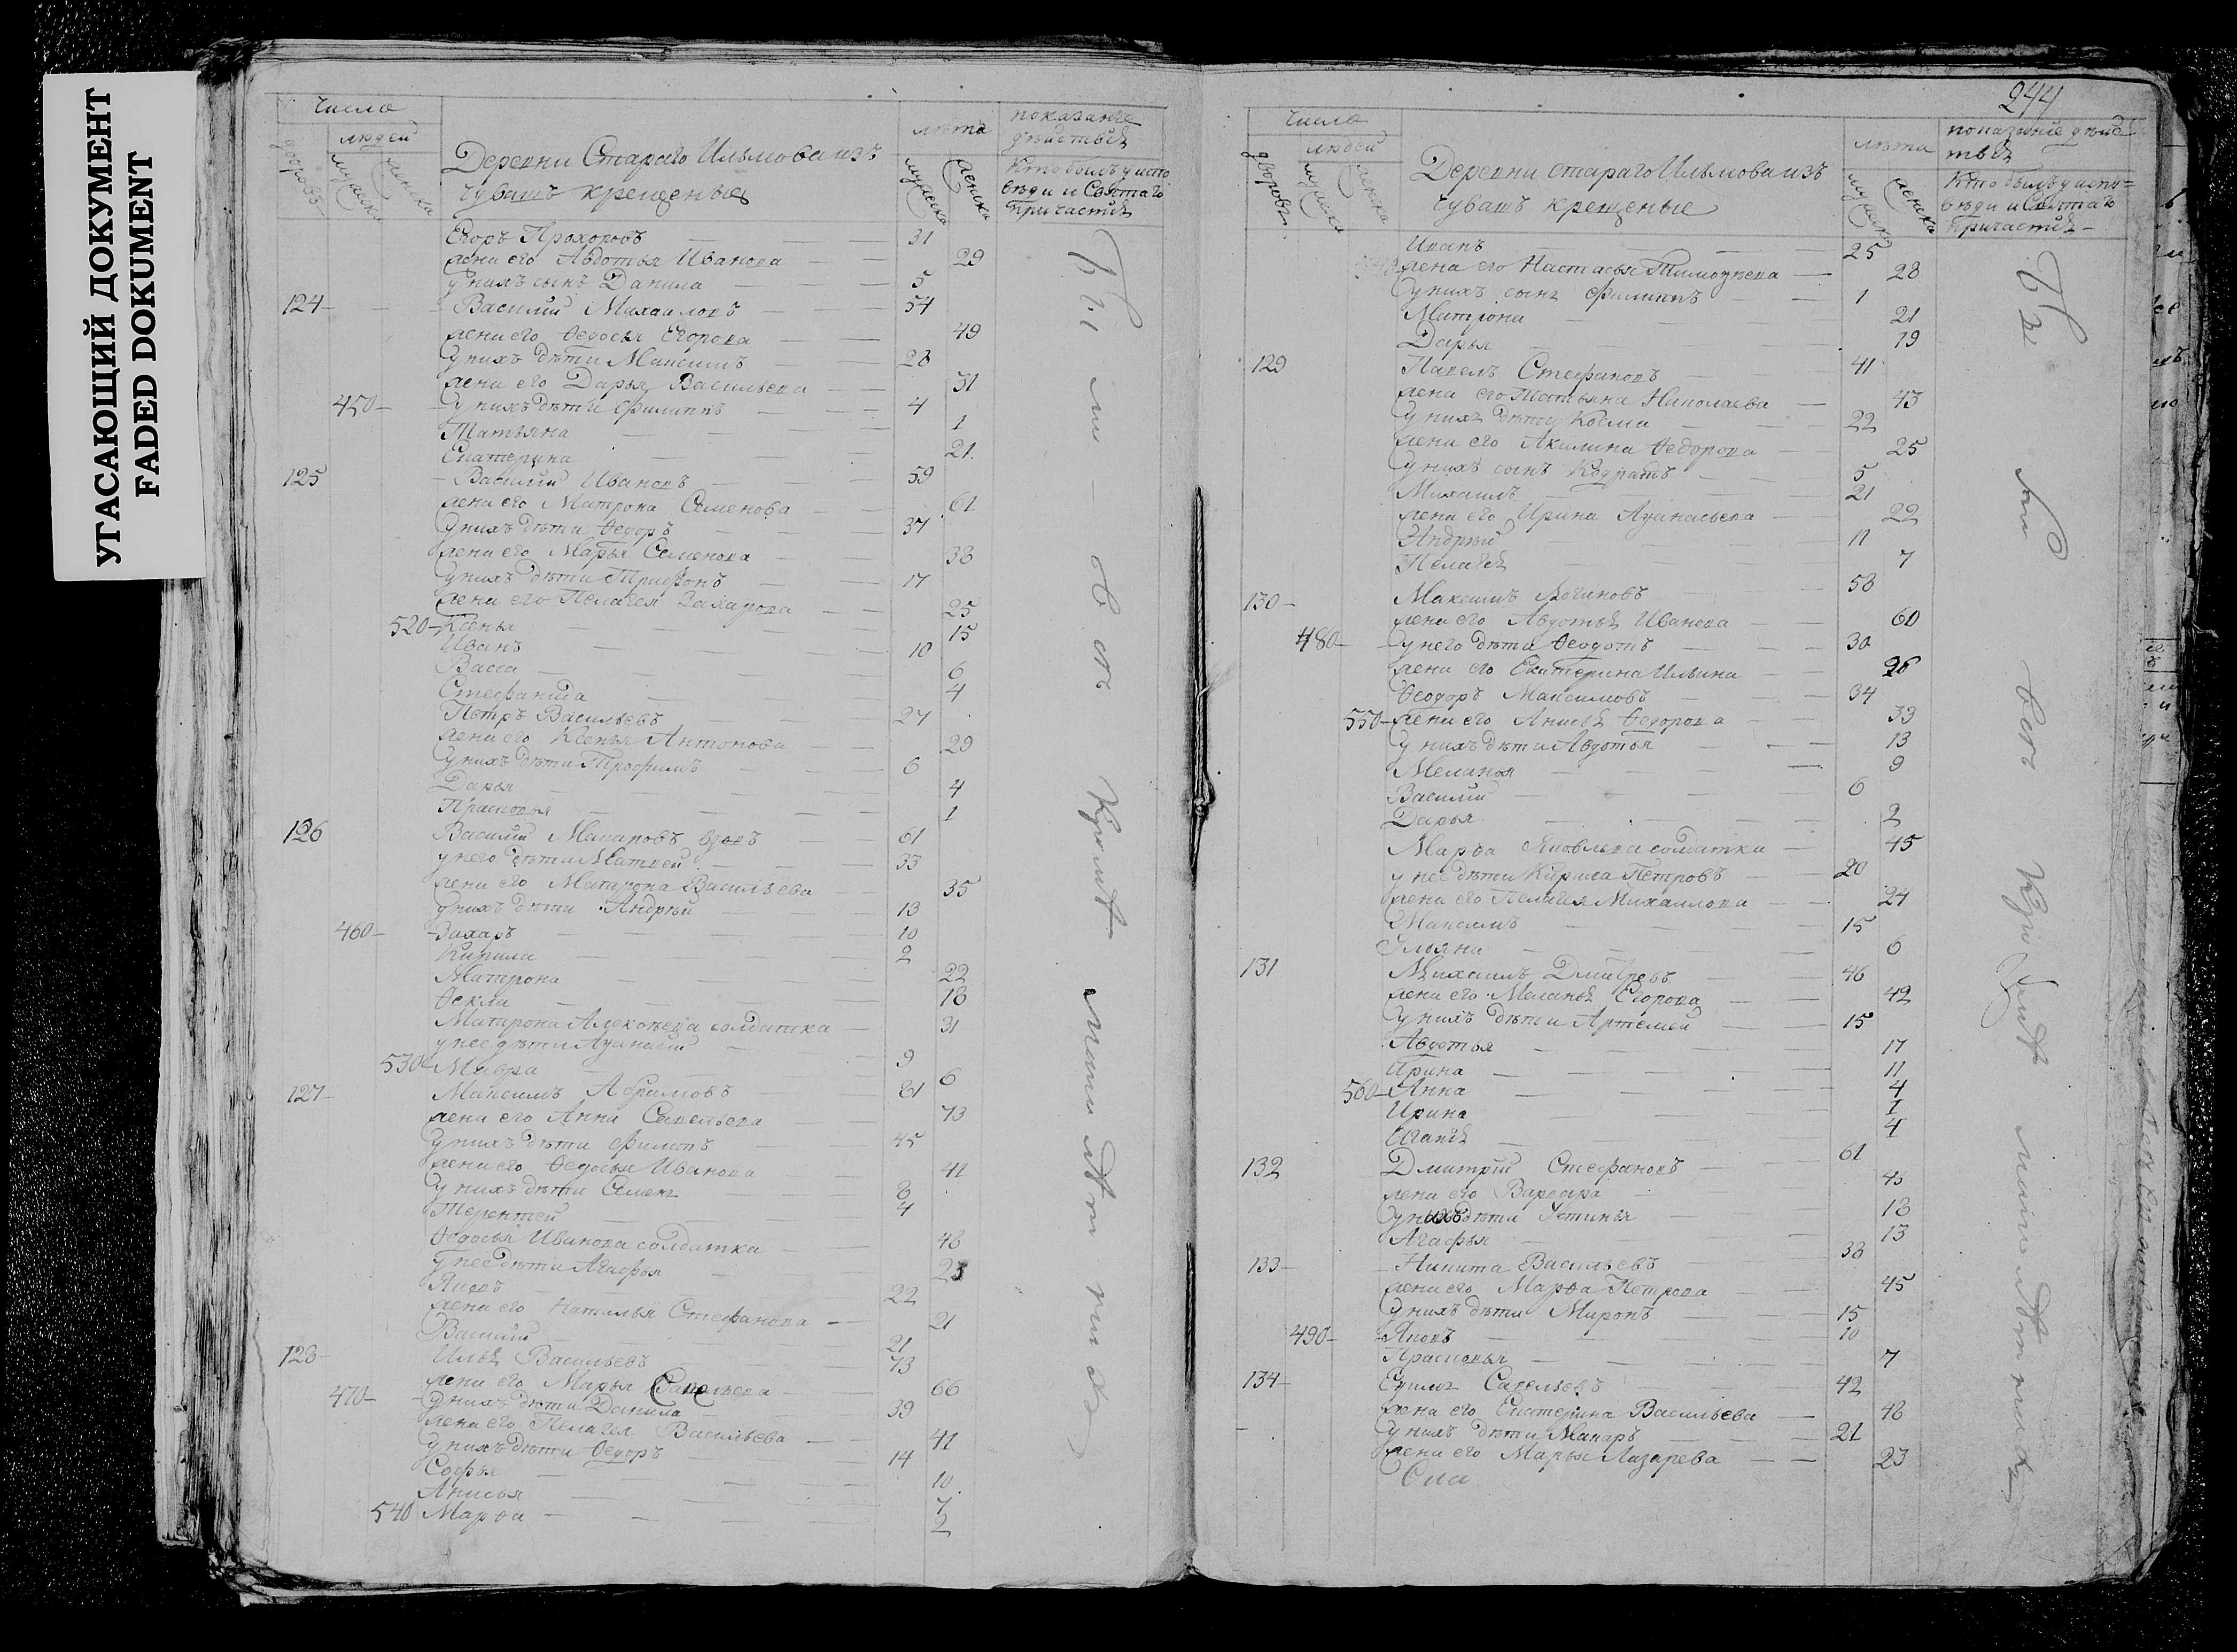 УГАСАЮЩИЙ ДОКУМЕНТ
FADED DOKUMENT
числа
людей
дворовъ
мужеска
женска
Деревни Стараго Ильмова изъ
чувашъ крещеныя
лѣта
мужеска
женска
показание
дѣйствия
Кто былъ у испо
вѣди и Святаго
причастия
Егоръ Прохоровъ 31
жена его Авдотья Иванова 29
у нихъ сынъ Данила 5
124 Василий Михаиловъ 54
жена его Ѳедосья Егорова 49
у нихъ дѣти Максимъ 28
жена его Дарья Васильева 31
450 у нихъ дѣти Филиппъ 4
Татьяна 1
Екатерина 21
125 Василий Ивановъ 59
жена его Матрона Семенова 61
у нихъ дѣти Ѳедоръ 37
жена его Марья Семенова 38
у нихъ дѣти Трифонъ 17
жена его Пелагея Захарова 25
520 Ксенья 15
Иванъ 10
Васса 6
Стефанида 4
Петръ Васильевъ 27
жена его Ксенья Антонова 29
у нихъ дѣти Трофимъ 6
Дарья 4
Прасковья 1
126 Василий Макаровъ вдовъ 61
у него дѣти Матвей 33
жена его Матрона Васильева 35
у нихъ дѣти Андрѣй 13
460 Захаръ 10
Кирила 2
Матрона 22
Ѳекла 18
Матрона Алексѣева солдатка 31
у нее дѣти Аѳанасий 9
530 Мавра 6
127 Максимъ Абрамовъ 81
жена его Анна Савельева 73
у нихъ дѣти Филипъ 45
жена его Ѳедосья Иванова 41
у нихъ дѣти Семенъ 8
Терентей 4
Ѳедосья Иванова солдатка 48
у нее дѣти Агафья 23
Яковъ 22
жена его Наталья Стефанова 21
Василий 21
128 Илья Васильевъ 73
жена его Марья Савельева 66
470 у нихъ дѣти Данила 39
жена его Пелагея Васильева 41
у нихъ дѣти Ѳедоръ 14
Софья 10
Анисья 7
540 Марѳа 2
244
числа
людей
дворовъ
мужеска
женска
Деревни стараго Ильмова изъ
чувашъ крещеные
лѣта
мужеска
женска
показание дѣйс
твия
Кто былъ у испо=
вѣди и Святаго
причастия
Иванъ 25
жена его Настасья Тимоѳеева 28
у нихъ сынъ Филиппъ 1
Матрона 21
Дарья 19
129 Павелъ Стефановъ 41
жена его Татьяна Николаева 43
у нихъ дѣти Косма 22
жена его Акилина Ѳедорова 25
у нихъ сынъ Кодратъ 5
Михаилъ 21
жена его Ирина Аѳанасьева 22
Андрѣй 11
Пелагея 7
130 Максимъ Логиновъ 58
жена его Авдотья Иванова 60
480 у него дѣти Ѳеодотъ 30
жена его Екатерина Ильина 26
Ѳеодоръ Максимовъ 34
550 жена его Анисья Ѳедорова 39
у нихъ дѣти Авдотья 13
Меланья 9
Василий 6
Дарья 2
Марѳа Яковлева солдатка 45
у нее дѣти Кирила Петровъ 20
жена его Пелагея Михаилова 24
Максимъ 15
Ульяна 6
131 Михаилъ Дмитревъ 46
жена его Меланья Егорова 42
у нихъ дѣти Артемей 15
Авдотья 17
Ирина 11
560 Анна 4
Ирина 1
4
132 Дмитрий Стефановъ 61
жена его Варвара 45
у нихъ дѣти Устинья 18
Агафья 13
133 Никита Васильевъ 38
жена его Марѳа Петрова 45
у нихъ дѣти Миронъ 15
490 Яковъ 10
Прасковья 7
134 Ефимъ Савельевъ 42
жена его Екатерина Васильева 48
у нихъ дѣти Макаръ 21
жена его Марья Лазарева 23